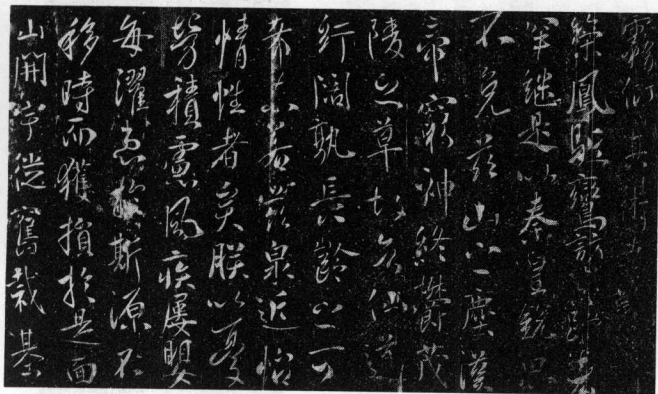 霧衍真
鳳駈鸞
罕繼是以秦皇銳思
不免茲山之塵漢
帝窮神終鬱茂
陵之草故知仙道
紆闊孰長齡之可
希未若茲泉近怡
情性者矣朕以憂
勞積慮風疾屢嬰
每濯患於斯源不
移時而獲損於是面
山開宇從舊裁基